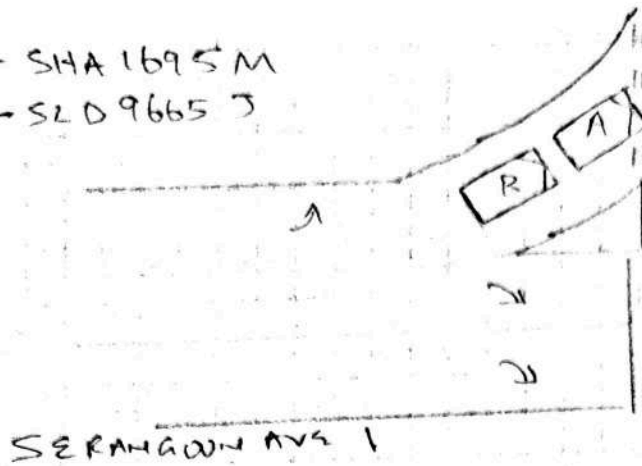 - SHA 1695 M
- SLD 9665 J
A
R
SERANGOON AVE 1